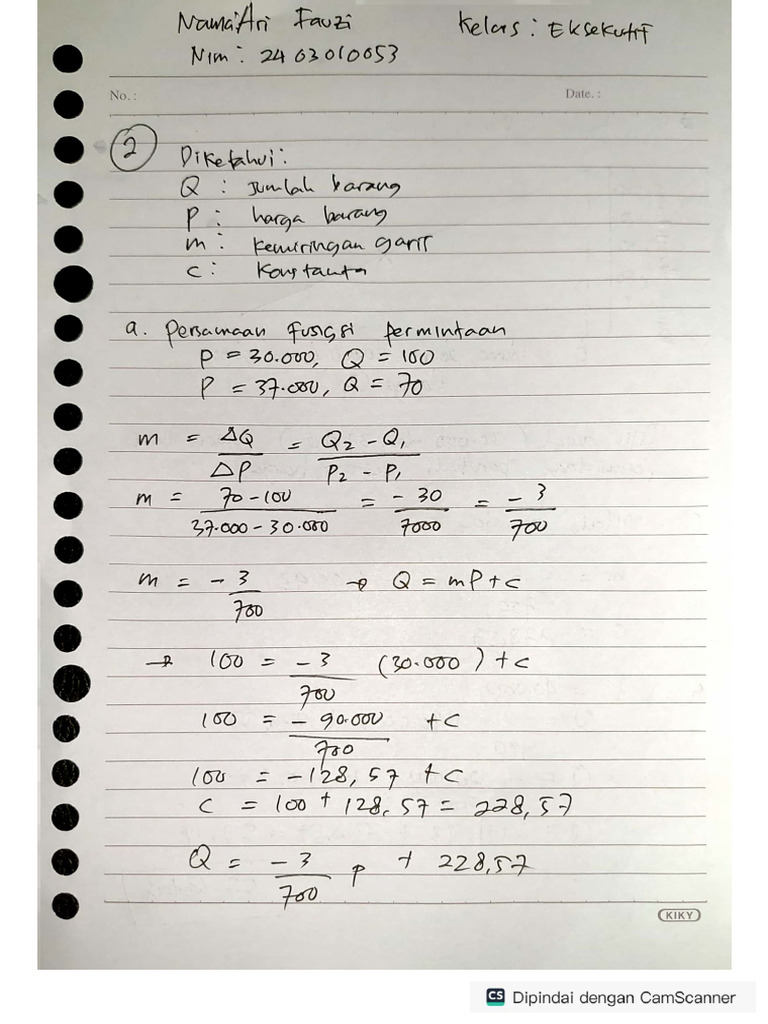 Nama: Ari Fauzi Kelas : Eksekutif
Nim : 2403010053
No. : Date. :
2 Diketahui :
Q : Jumlah barang
P : harga barang
m : Kemiringan garis
c : Konstanta
a. Persamaan fungsi permintaan
P = 30.000, Q = 100
P = 37.000, Q = 70
m = ΔQ/ΔP = Q₂ - Q₁/P₂ - P₁
m = 70 - 100/37.000 - 30.000 = - 30/7000 = - 3/700
m = - 3/700 → Q = mP + c
→ 100 = - 3/700 (30.000) + c
100 = - 90.000/700 + c
100 = - 128,57 + c
c = 100 + 128,57 = 228,57
Q = - 3/700 P + 228,57
KIKY
CS Dipindai dengan CamScanner